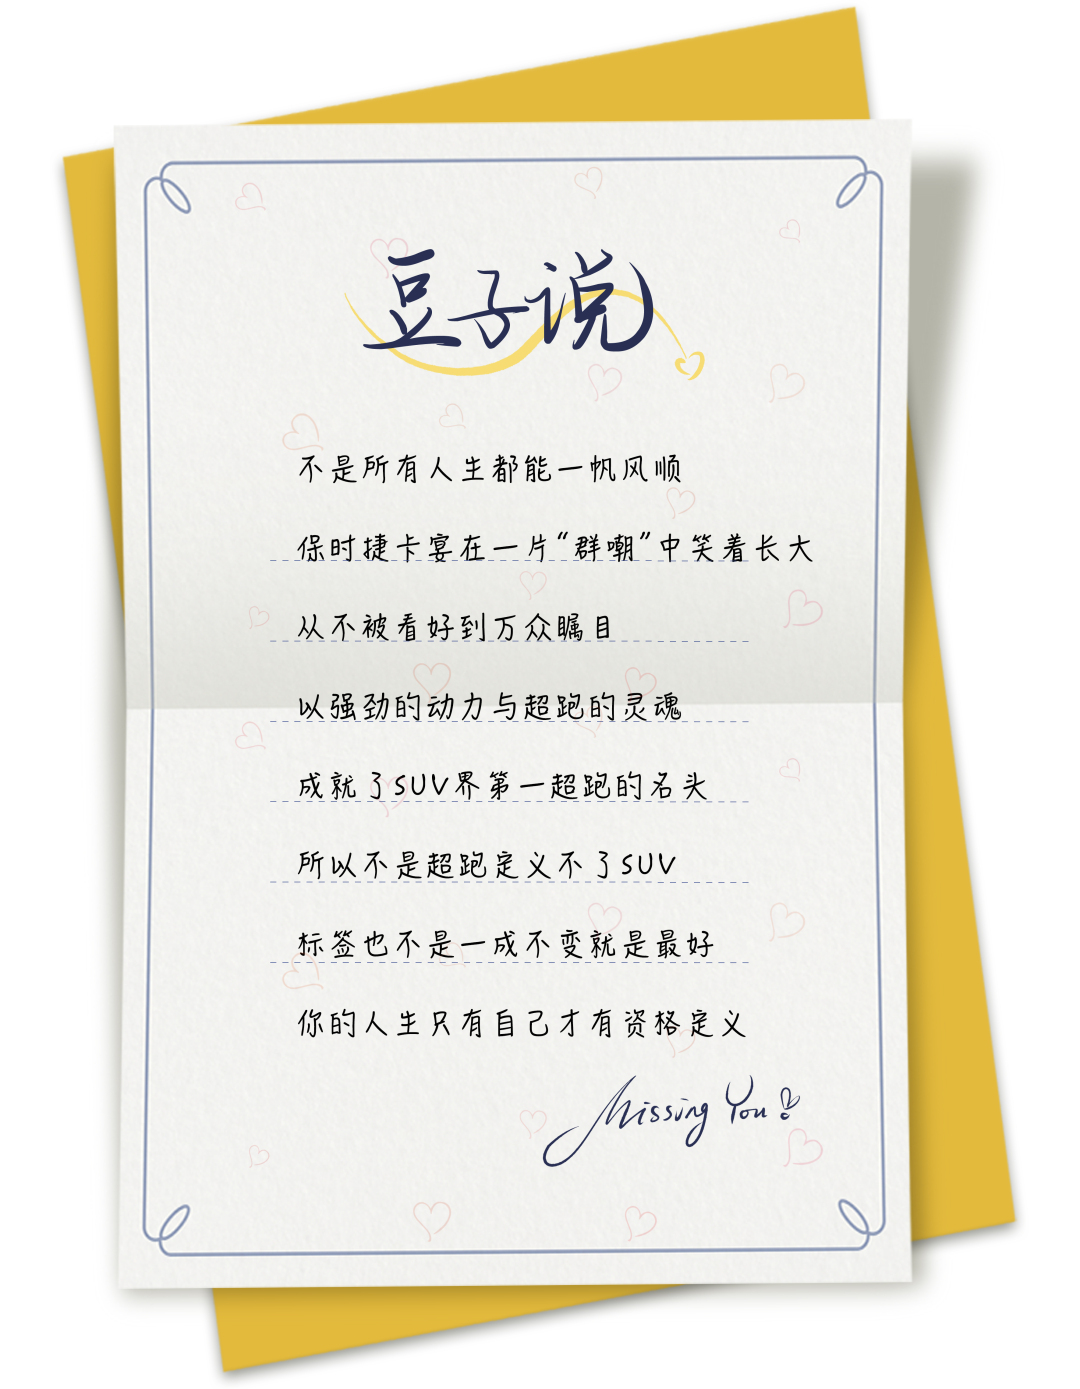 豆子说
不是所有人生都能一帆风顺
保时捷卡宴在一片“群嘲”中笑着长大
从不被看好到万众瞩目
以强劲的动力与超跑的灵魂
成就了SUV界第一超跑的名头
所以不是超跑定义不了SUV
标签也不是一成不变就是最好
你的人生只有自己才有资格定义
Missing You